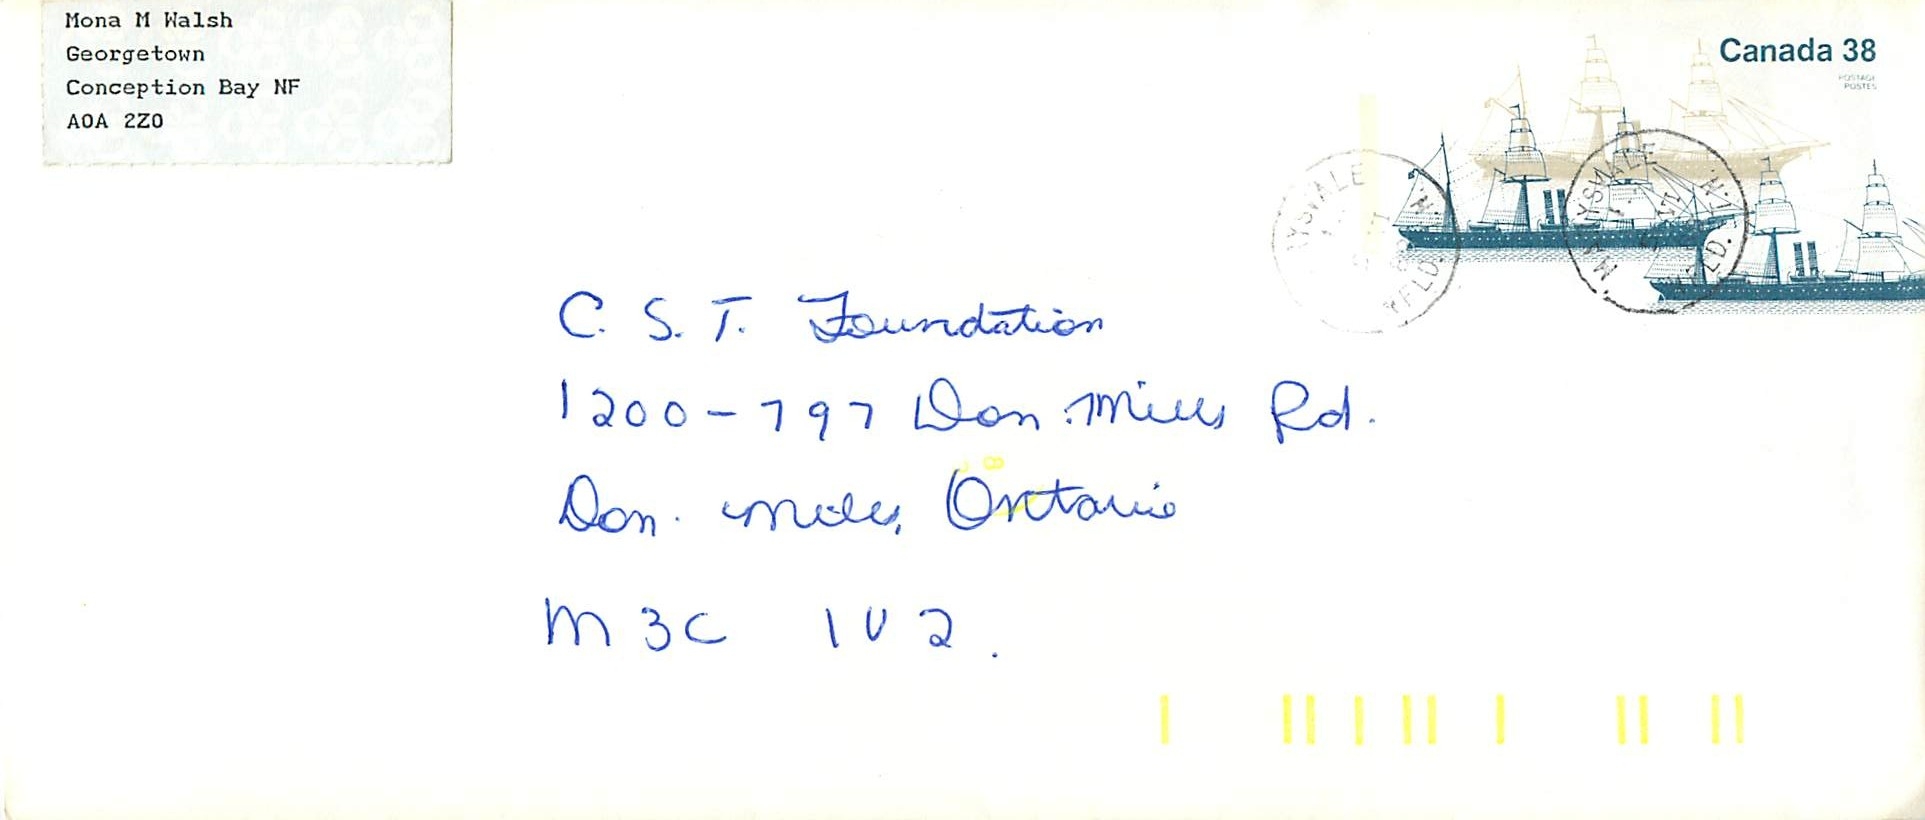 Mona M Walsh
Georgetown
Conception Bay NF
A0A 2Z0
Canada 38
POSTAGE
POSTES
MARYSVALE
NFLD.
C. S. T. Foundation
1200-797 Don Mills Rd.
Don Mills, Ontario
M3C 1V2.